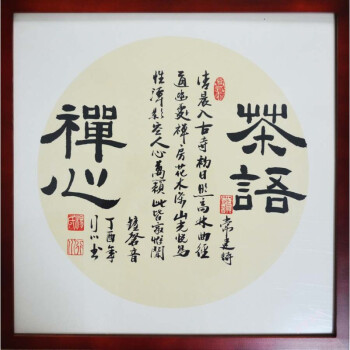 茶語
常建詩
清晨入古寺初日照高林曲徑
通幽處禪房花木深山光悅鳥
性潭影空人心萬籟此皆寂惟聞
鐘磬音
禪心
丁酉年
书